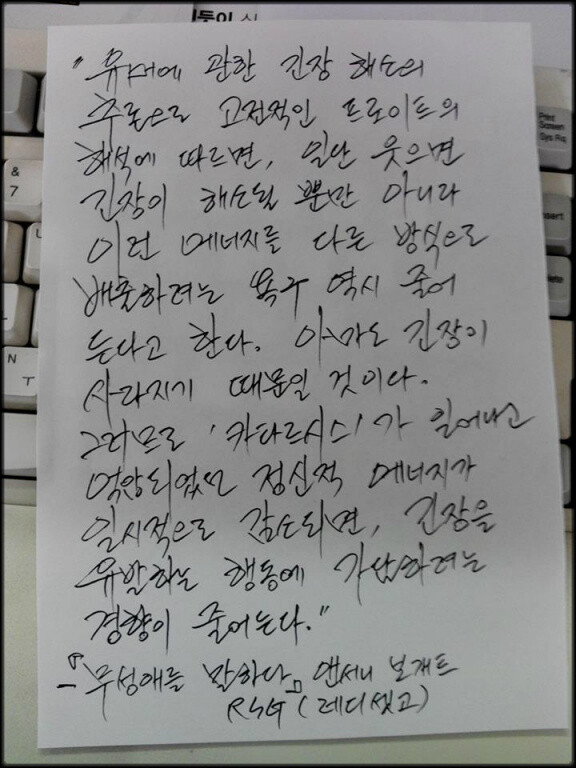 "유머에 관한 긴장 해소의
추론으로 고전적인 프로이트의
해석에 따르면, 일단 웃으면
긴장이 해소될 뿐만 아니라
이런 에너지를 다른 방식으로
배출하려는 욕구 역시 줄어
든다고 한다. 아마도 긴장이
사라지기 때문일 것이다.
그러므로 '카타르시스'가 일어나고
억압되었던 정신적 에너지가
일시적으로 감소되면, 긴장을
유발하는 행동에 가담하려는
경향이 줄어든다."
-『무성애를 말하다』 앤서니 보개트
RSG (레디셋고)
Print
Screen
Sys Rq
&
7
N
ㅜ